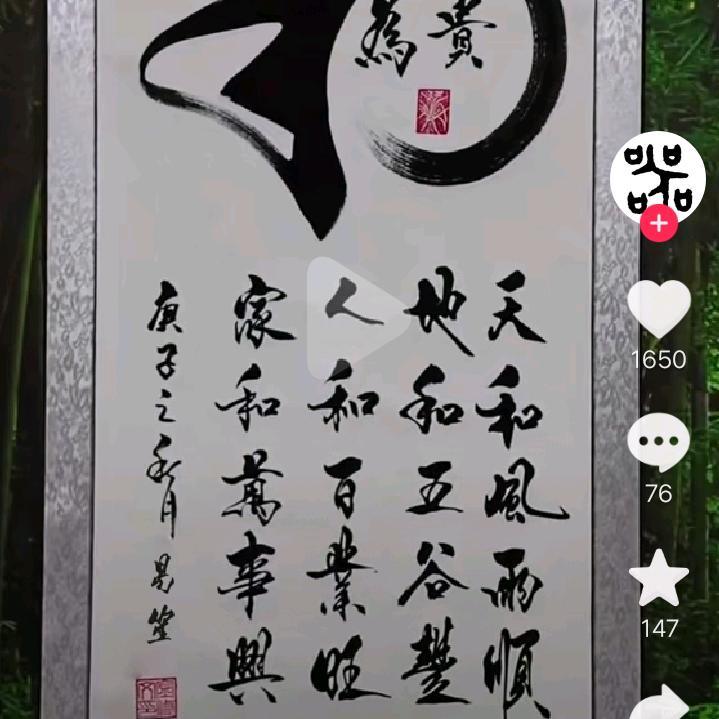 和
為貴
天和風雨順
地和五谷豐
人和百業旺
家和萬事興
庚子之秋月
1650
76
147